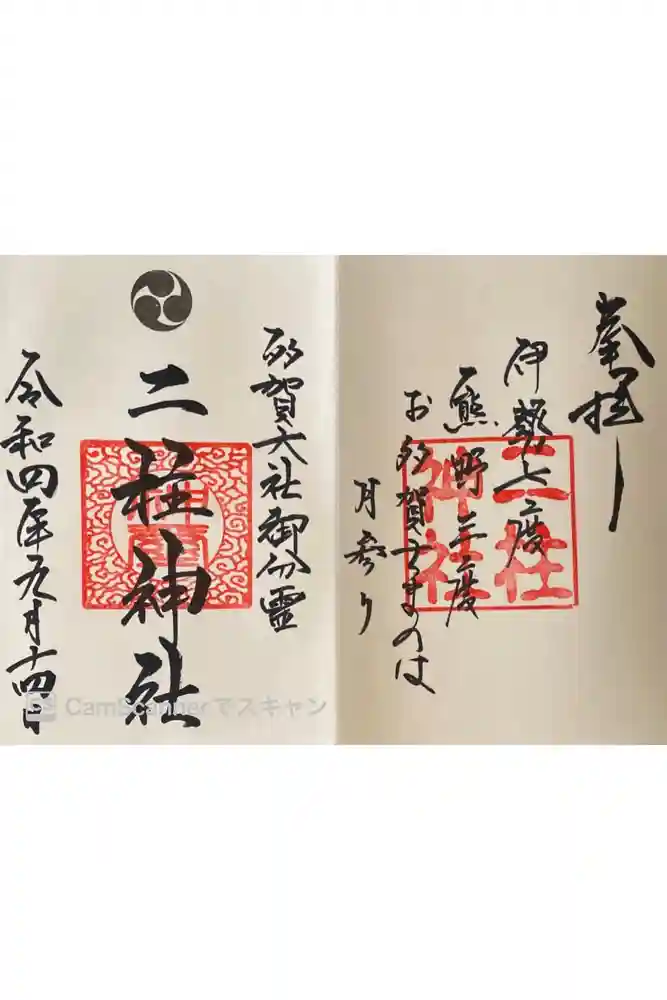 奉拝
伊勢七度
熊野三度
お多賀さまのは
月参り
二柱
神社
多賀大社御分霊
二柱神社
令和四年九月十四日
CamScannerでスキャン